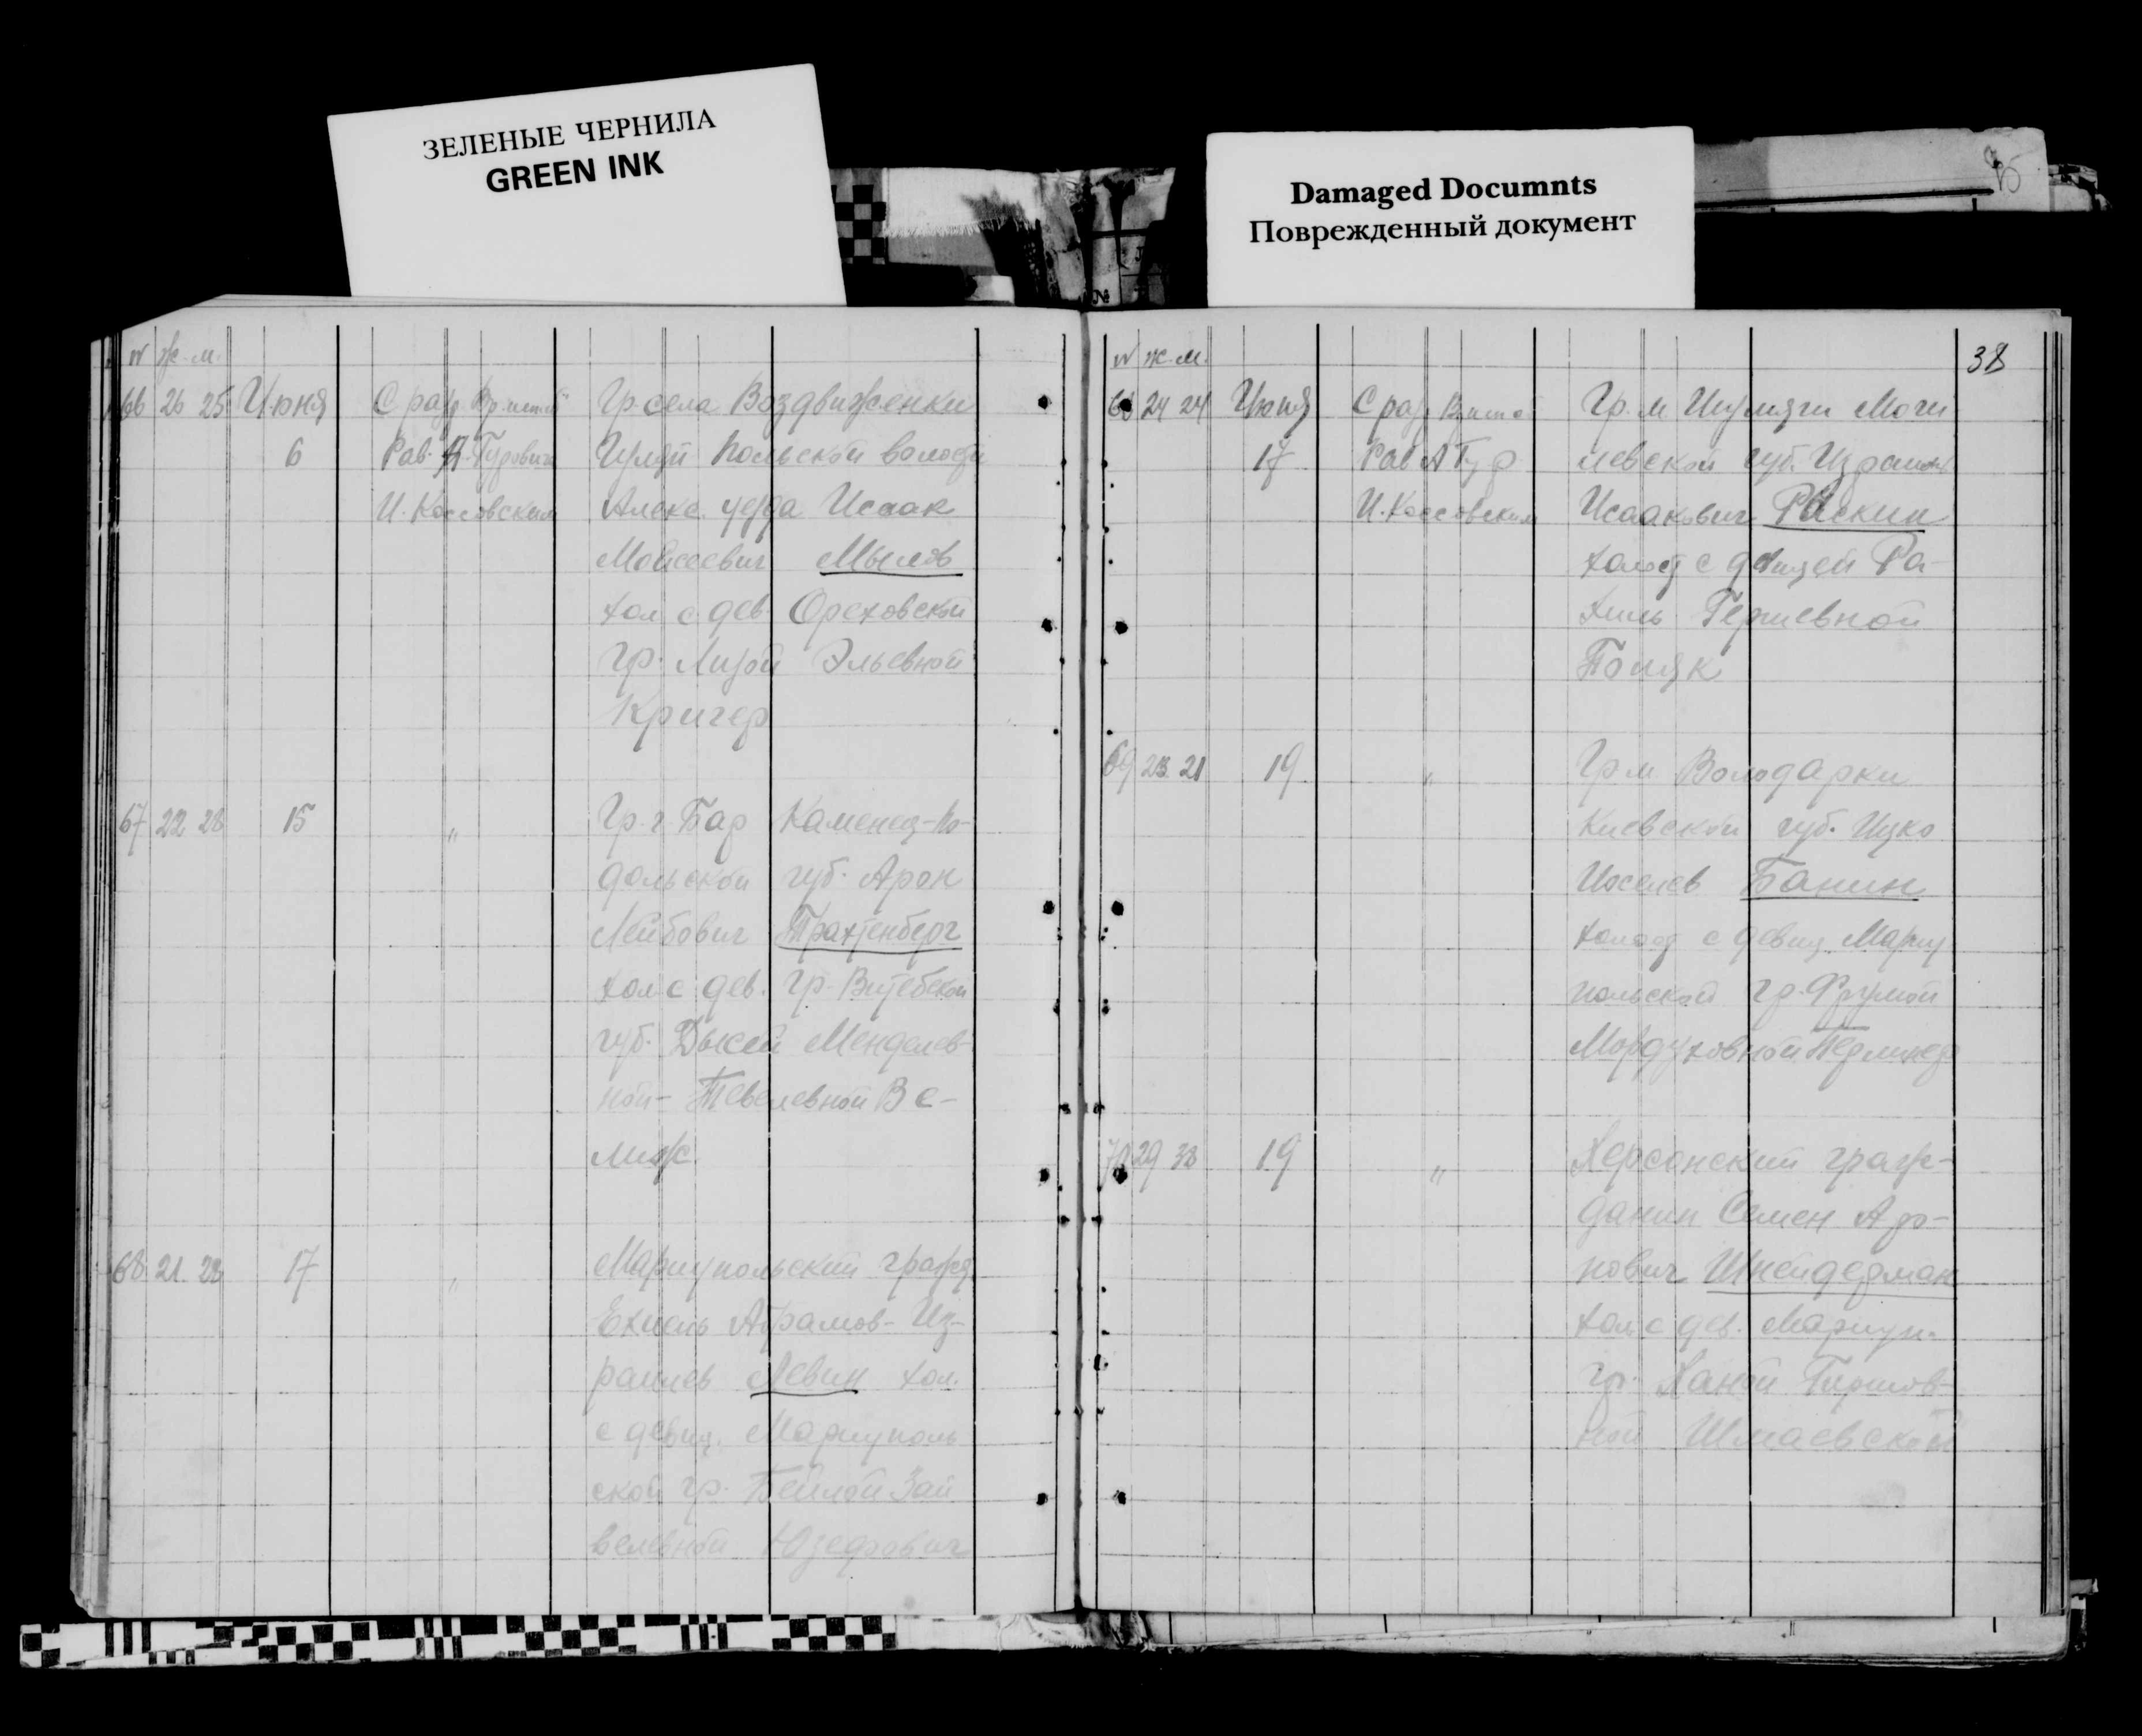 ЗЕЛЕНЫЕ ЧЕРНИЛА
GREEN INK
Damaged Documnts
Поврежденный документ
№
N ж. м.
66 26 25 Июня С раз. Гр. села Воздвиженки
6 Рав. А. Гуровича Гуляй Польской волости
И. Коссовским Алекс. уезда Исаак
Моисеевич Мылов
хол с дев. Ореховской
Гр. Лизой Эльевной
Кригер
67 22 28 15 " Гр. г Бар Каменец-По-
дольской губ. Арон
Лейбович Трахтенберг
хол с дев. гр. Витебской
губ. Дысей Менделев-
ной- Тевелевной Ве-
лиж.
68 21 28 17 " Мариупольский гражд.
Ехиель Абрамов- Из-
раилев Левин хол.
с девиц. Мариуполь
ской гр. Бейлой Зай
велевной Юзефович
38
N ж. м.
24 24 Июня С раз. Гр. м Моги
17 Рав А Гур левской губ.
И. Коссовским Исаакович Раскин
холост с девицей Ра-
хиль Гершевной
Поляк
69 21 19 " Гр м Володарки
Киевской губ. Ицко
Иоселев Банин
холост с девиц. Мариу
польской гр. Фрумой
Мордуховной
70 29 38 19 " Херсонский граж-
данин Семен Аро-
нович Шнейдерман
хол с дев. Мариуп.
гр. Ханой Гиршов-
ной Шмаевской